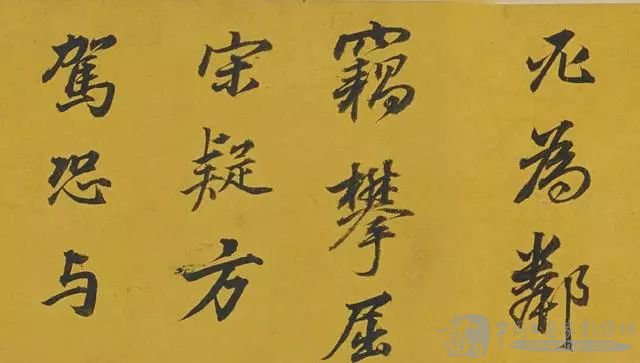 必為鄰
竊攀屈
宋疑方
駕恐与